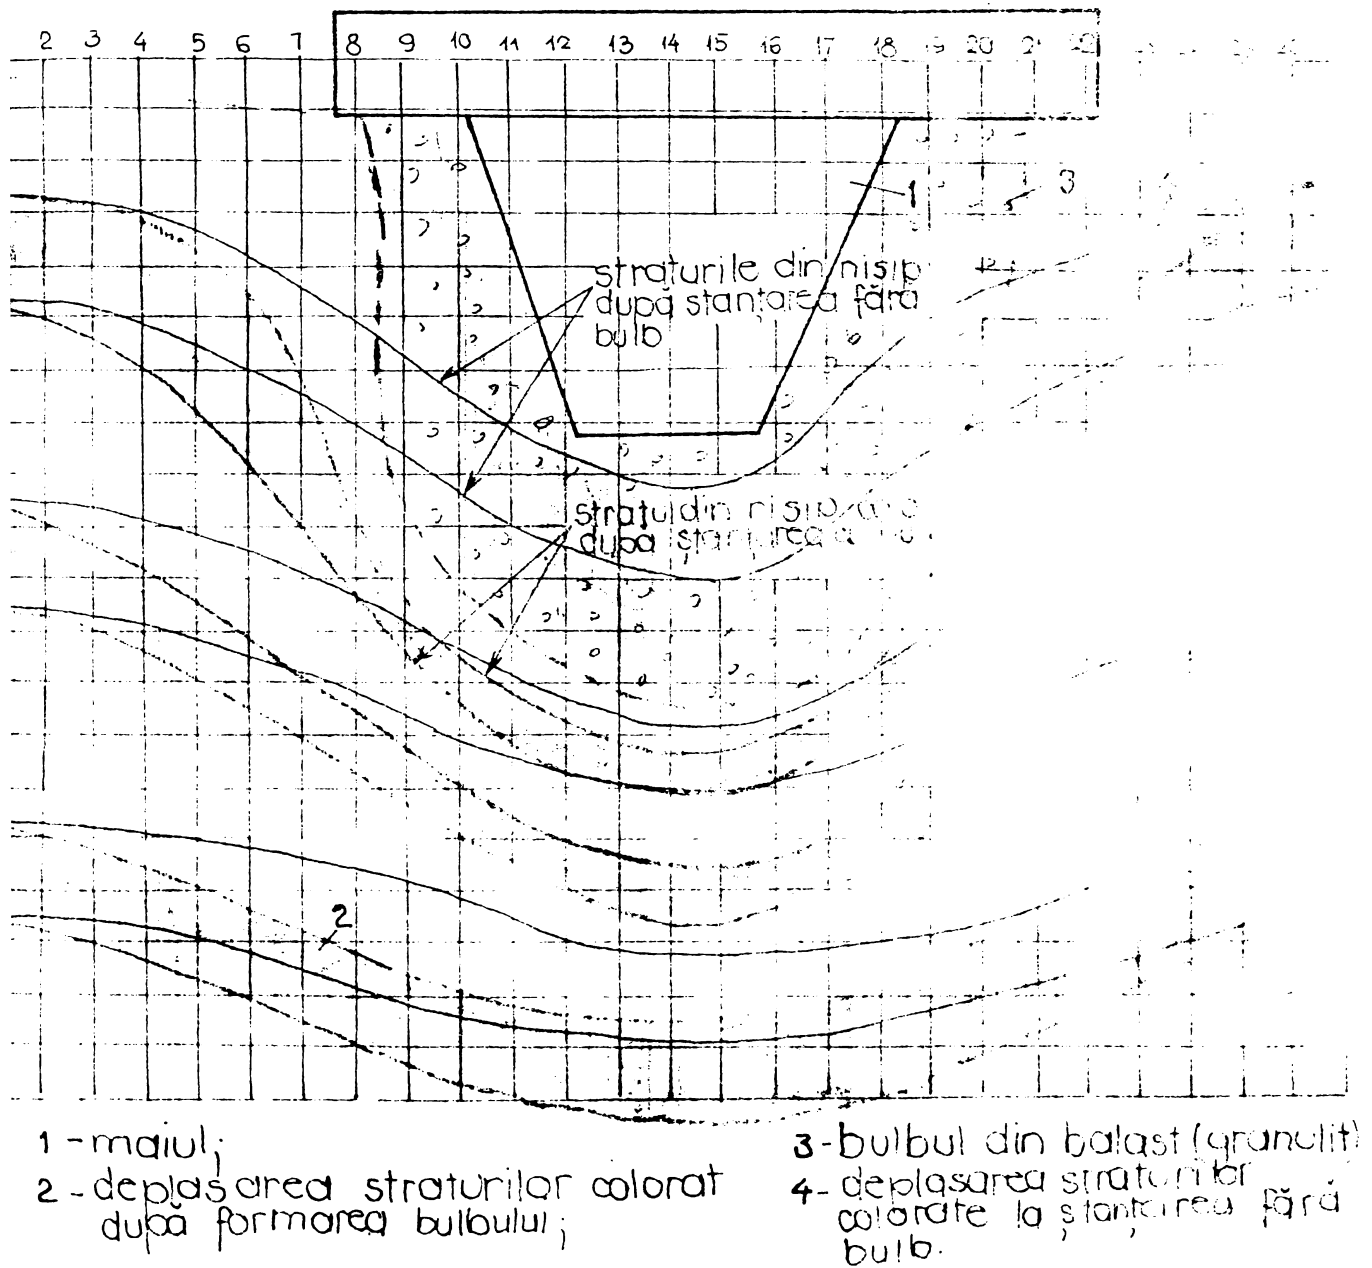 2 3 4 5 6 7 8 9 10 11 12 13 14 15 16 17 18 19 20 21 22
1
3
straturile din nisip
după stanțarea fără
bulb
stratul din nisip
după
2
1 - maiul;
2 - deplasarea straturilor colorat
după formarea bulbului;
3 - bulbul din balast (granulit)
4 - deplasarea straturilor
colorate la ștanțarea fără
bulb.